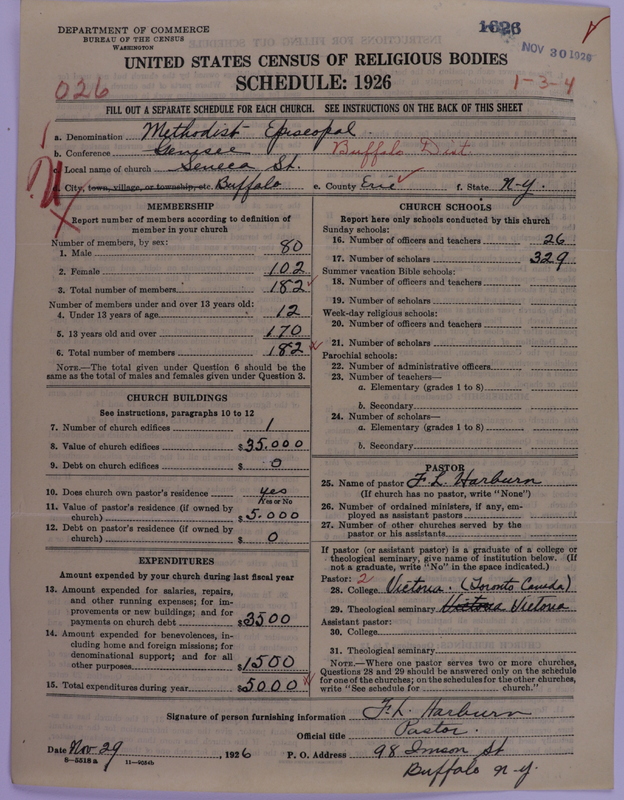 DEPARTMENT OF COMMERCE
BUREAU OF THE CENSUS
WASHINGTON
1626
NOV 30 1926
UNITED STATES CENSUS OF RELIGIOUS BODIES
SCHEDULE: 1926
026
1-3-4
FILL OUT A SEPARATE SCHEDULE FOR EACH CHURCH. SEE INSTRUCTIONS ON THE BACK OF THIS SHEET
a. Denomination Methodist Episcopal
b. Conference Genesee Buffalo Dist
c. Local name of church Seneca St.
d. City, town, village, or township, etc. Buffalo e. County Erie f. State N-Y.
MEMBERSHIP
Report number of members according to definition of
member in your church
Number of members, by sex:
1. Male 80
2. Female 102
3. Total number of members 182
Number of members under and over 13 years old:
4. Under 13 years of age 12
5. 13 years old and over 170
6. Total number of members 182
NOTE.—The total given under Question 6 should be
same as the total of males and females given under Question 3.
CHURCH BUILDINGS
See instructions, paragraphs 10 to 12
7. Number of church edifices 1
8. Value of church edifices $35.000
9. Debt on church edifices $ 0
10. Does church own pastor's residence yes
Yes or No
11. Value of pastor's residence (if owned by
church) $5.000
12. Debt on pastor's residence (if owned by
church) $ 0
EXPENDITURES
Amount expended by your church during last fiscal year
13. Amount expended for salaries, repairs,
and other running expenses; for im-
provements or new buildings; and for
payments on church debt $3500
14. Amount expended for benevolences, in-
cluding home and foreign missions; for
denominational support; and for all
other purposes $1500
15. Total expenditures during year $5000
CHURCH SCHOOLS
Report here only schools conducted by this church
Sunday schools:
16. Number of officers and teachers 26
17. Number of scholars 329
Summer vacation Bible schools:
18. Number of officers and teachers
19. Number of scholars
Week-day religious schools:
20. Number of officers and teachers
21. Number of scholars
Parochial schools:
22. Number of administrative officers
23. Number of teachers—
a. Elementary (grades 1 to 8)
b. Secondary
24. Number of scholars—
a. Elementary (grades 1 to 8)
b. Secondary
PASTOR
25. Name of pastor F. L. Harburn
(If church has no pastor, write "None")
26. Number of ordained ministers, if any, em-
ployed as assistant pastors
27. Number of other churches served by the
pastor or his assistants
If pastor (or assistant pastor) is a graduate of a college or
theological seminary, give name of institution below. (If
not a graduate, write "No" in the space indicated.)
Pastor: 2
28. College Victoria. (Toronto Canada)
29. Theological seminary Victoria Victoria
Assistant pastor:
30. College
31. Theological seminary
NOTE.—Where one pastor serves two or more churches,
Questions 28 and 29 should be answered only on the schedule
for one of the churches; on the schedules for the other churches,
write "See schedule for church."
Signature of person furnishing information F. L. Harburn
Official title Pastor.
Date Nov 29, 1926 P. O. Address 98 Imson St
Buffalo N-Y.
8—5518 a 11—9054b